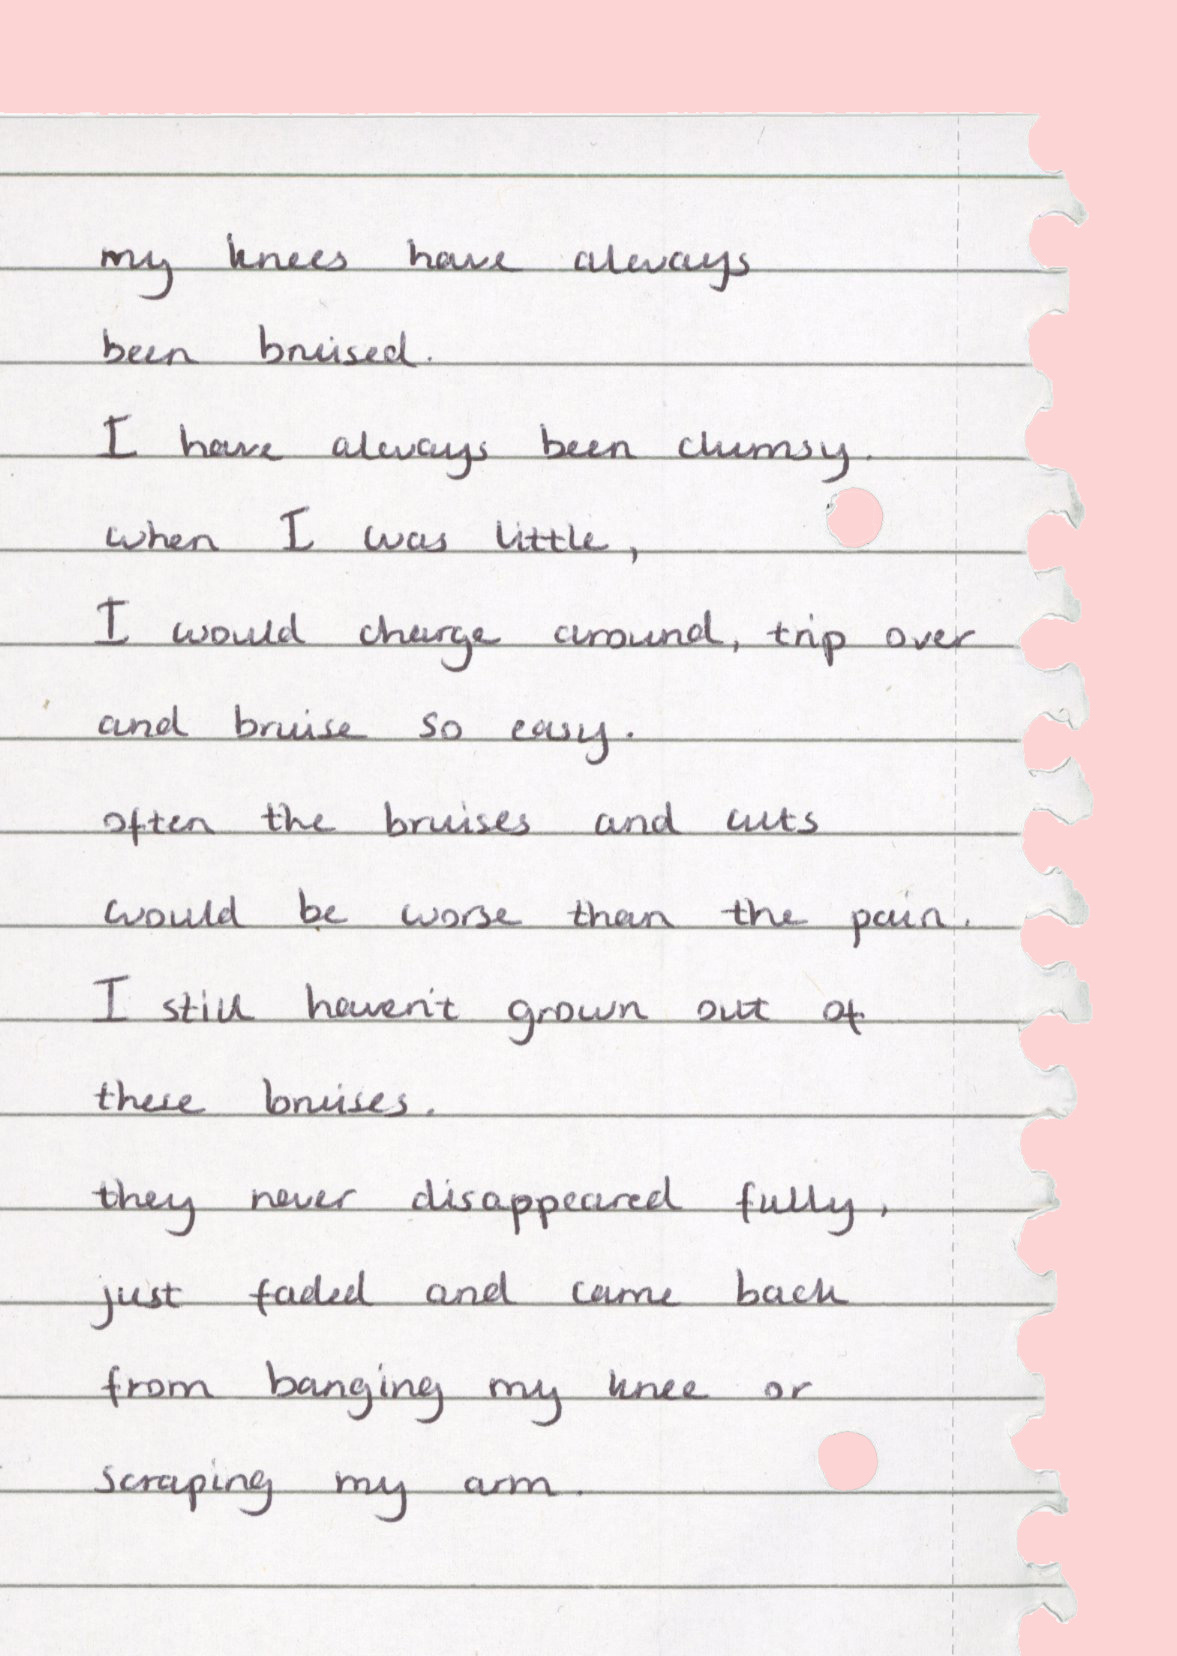 my knees have always
been bruised.
I have always been clumsy.
when I was little,
I would charge around, trip over
and bruise so easy.
often the bruises and cuts
would be worse than the pain.
I still haven't grown out of
these bruises.
they never disappeared fully,
just faded and came back
from banging my knee or
scraping my arm.